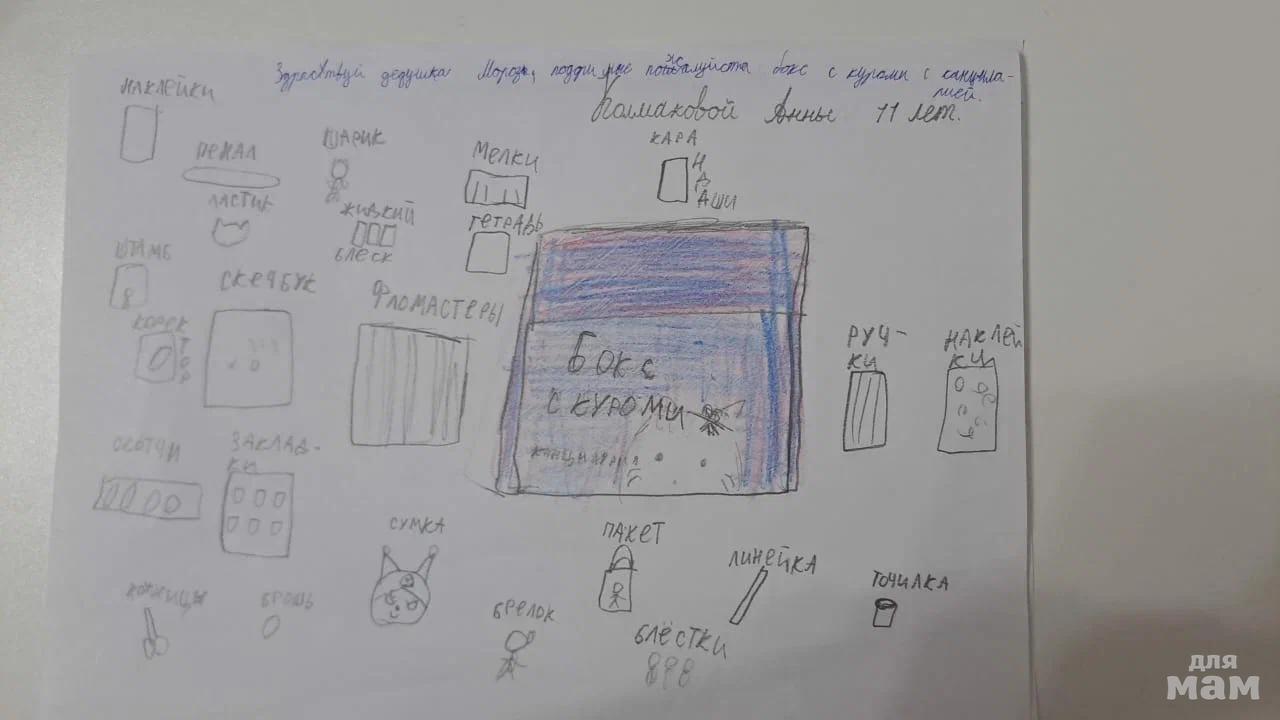 Здраствуй дедушка Мороз, подари мне пожалуйста бокс с куроми с канцеля-
рией.
Колмаковой Анны 11 лет.
НАКЛЕЙКИ
ПЕНАЛ
ШАРИК
МЕЛКИ
КАРА
Н
Д
АШИ
ЛАСТИК
ЖИДКИЙ
БЛЕСК
ТЕТРАДЬ
ШТАМБ
СКЕЧБУК
ФЛОМАСТЕРЫ
КОРЕК
ТОР
БОКС
С КУРОМИ
РУЧ-
КИ
НАКЛЕЙ
КИ
СКОТЧИ
ЗАКЛАД-
КИ
СУМКА
ПАКЕТ
ЛИНЕЙКА
ТОЧИЛКА
НОЖНИЦЫ
БРОШЬ
БРЕЛОК
БЛЁСТКИ
для
мам